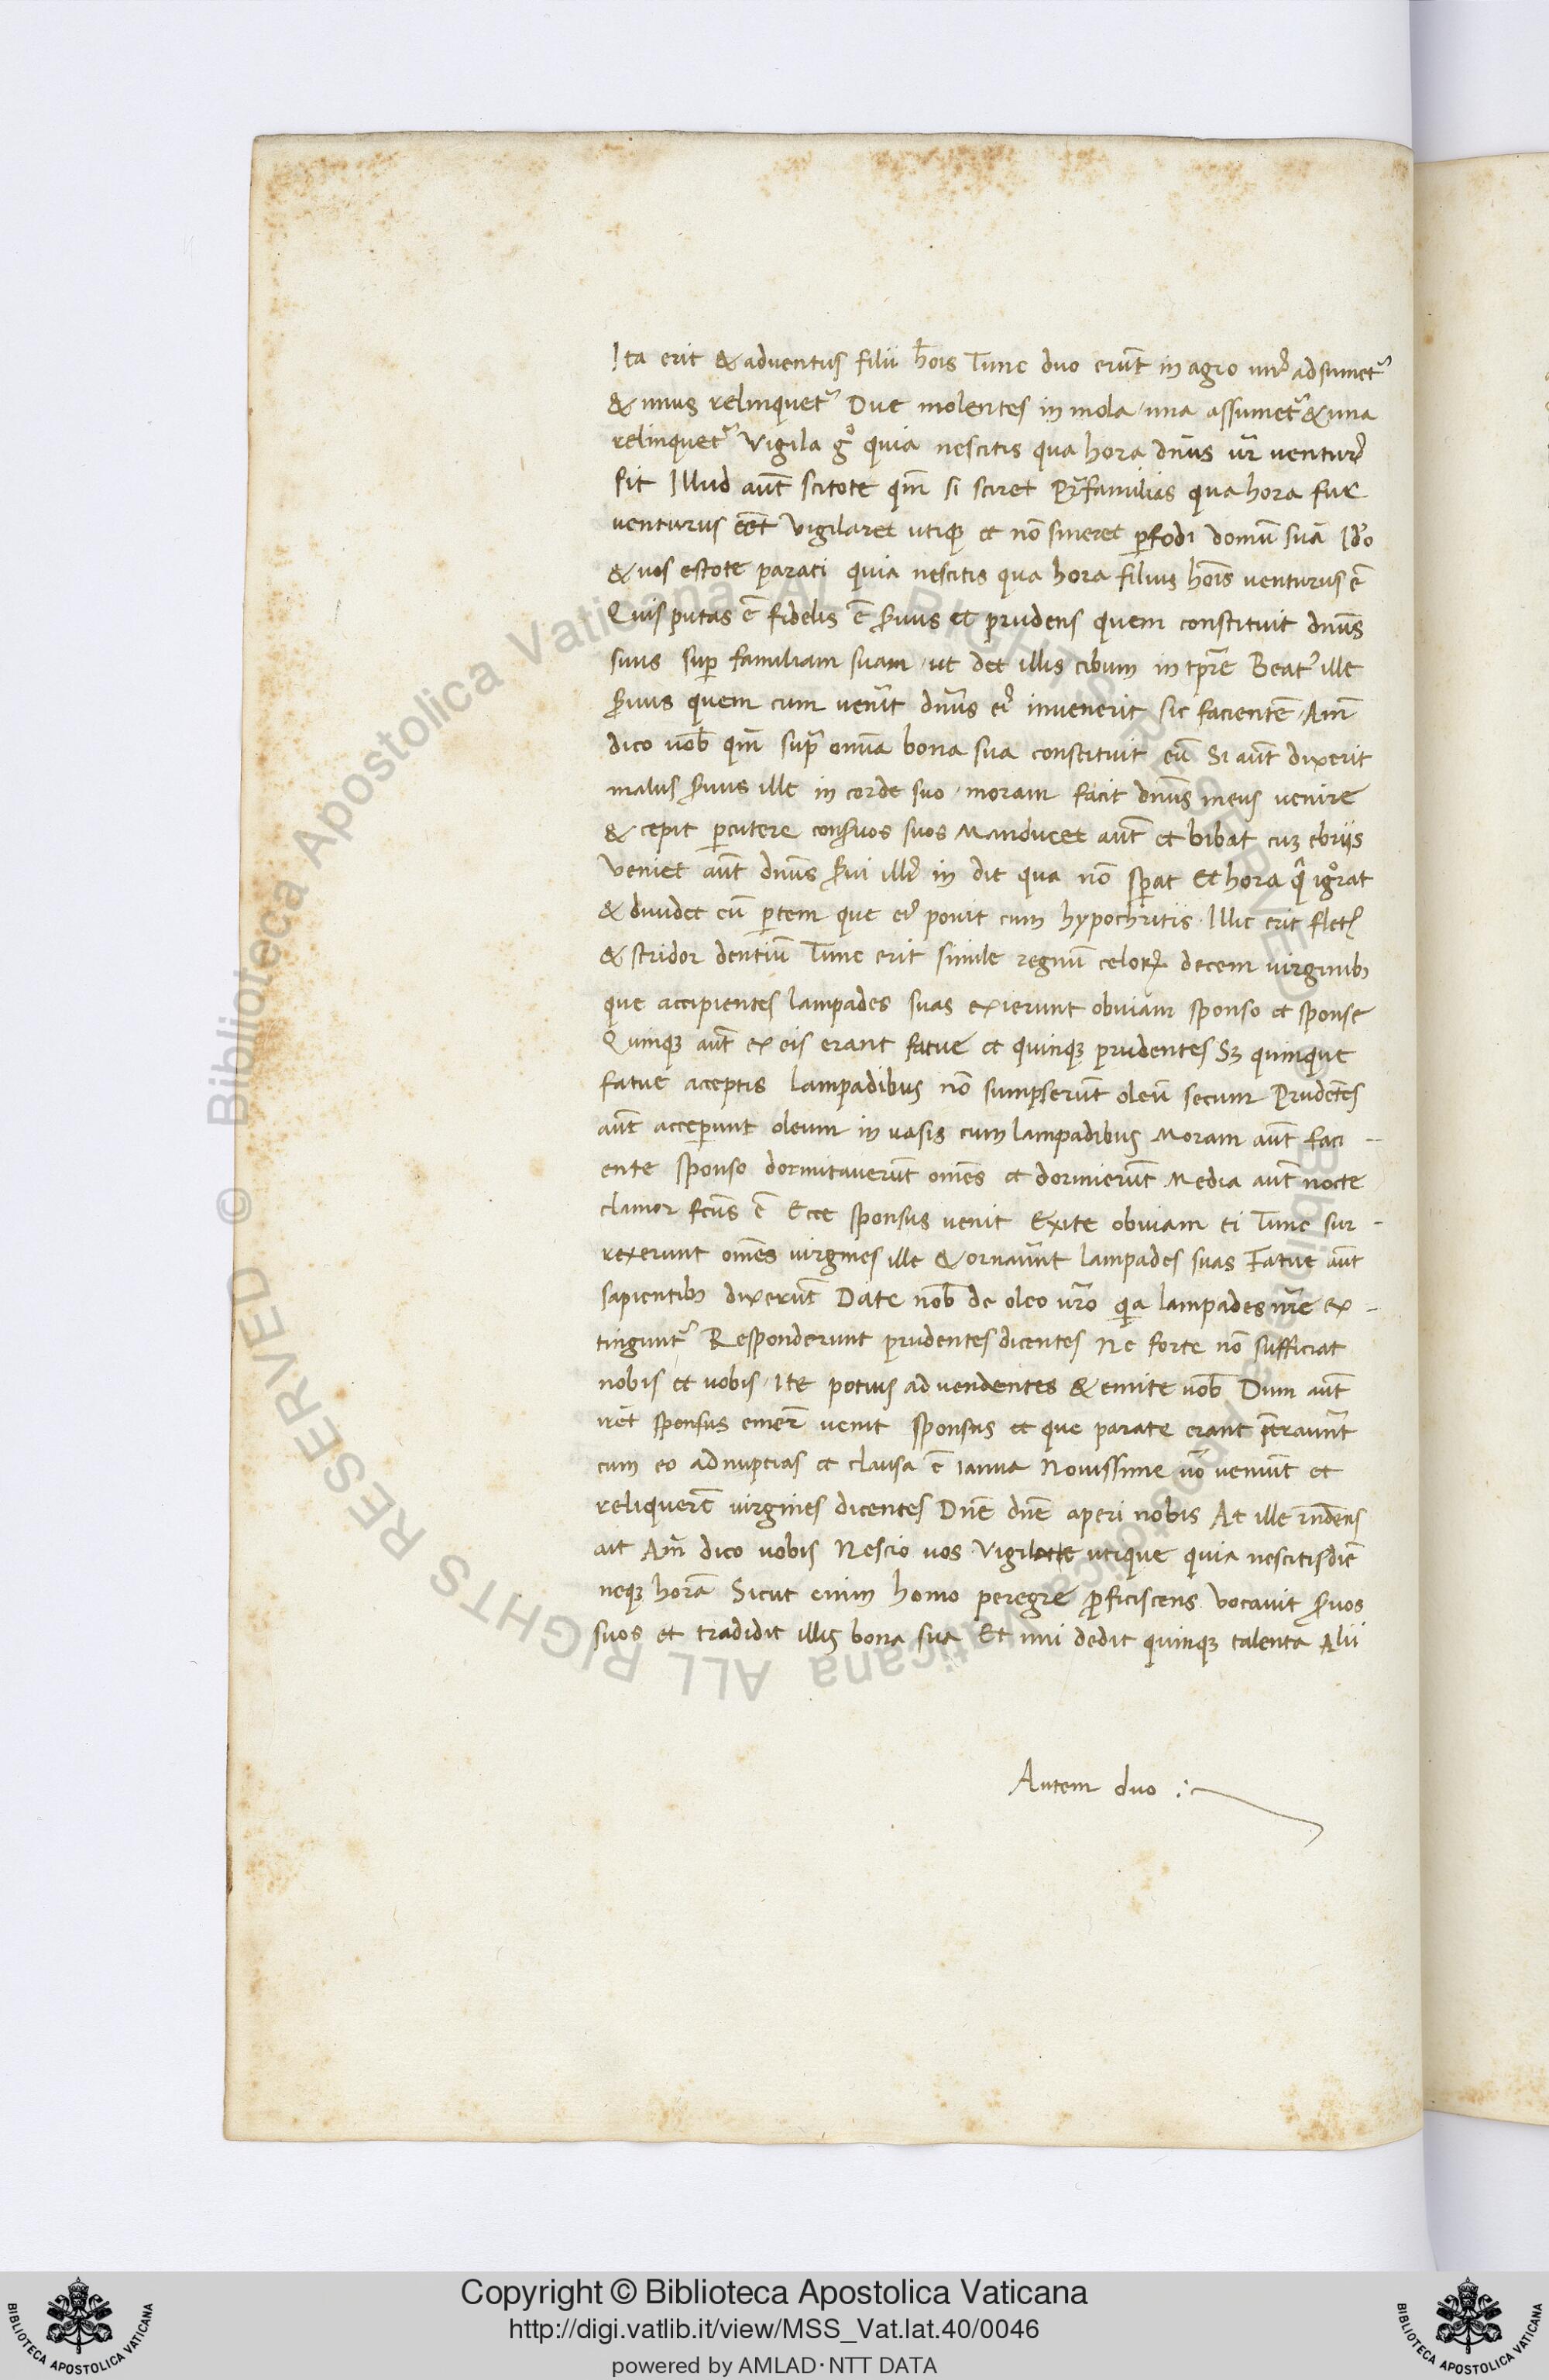 Ita erit & adventus filii hoīs Tunc duo erūt in agro unꝰ adsumetᷣ
& unus relinquetᷣ Due molentes in mola una assumetᷣ & una
relinquetᷣ Vigila gͦ quia nescitis qua hora dn̄us ur̄ venturꝰ
sit Illud aut̄ scitote qm̄ si sciret Pr̄familias qua hora fur
venturus eēt vigilaret utiqꝫ et nō sineret ꝑfodi domū suā Id̓o
& vos estote parati quia nescitis qua hora filius hoīs venturus ē
Quis putas ē fidelis ē ẜvus et prudens quem constituit dn̄us
suus suꝑ familiam suam ut det illis cibum in tp̄re Beatꝰ ille
ẜvus quem cum ven̄it dn̄us eiꝰ invenerit sic facientē Am̄
dico vob̄ qm̄ supr̄ om̄ia bona sua constituit eū Si aut̄ dixerit
malus ẜvus ille in corde suo moram facit dn̄us meus venire
& cepit ꝑcutere conẜvos suos Manducet aut̄ et bibat cuꝫ ebriis
Veniet aut̄ dn̄us ẜvi illiꝰ in die qua nō sꝑat et hora qͣ igͦrat
& dividet eū ꝑtem que eiꝰ ponit cum hypochritis Illic erit fletꝰ
& stridor dentiū Tunc erit simile regnū celoꝝ decem virginibꝫ
que accipientes lampades suas exierunt obviam sponso et sponse
Quinqꝫ aut̄ ex eis erant fatue et quinqꝫ prudentes Sꝫ quinque
fatue acceptis lampadibus nō sumpserūt oleū secum Prudētes
aut̄ acceꝑunt oleum in vasis cum lampadibus Moram aut̄ faci-
ente sponso dormitaverūt om̄es et dormierūt Media aut̄ nocte
clamor fc̄us ē Ecce sponsus venit Exite obviam ei Tunc sur-
rexerunt om̄es virgines ille & ornav̄unt lampades suas Fatue aut̄
sapientibꝫ dixerūt Date nob̄ de oleo ur̄o qͥa lampades nr̄e ex-
tinguntᷣ Responderunt prudentes dicentes Ne forte nō sufficiat
nobis et vobis Ite potius ad vendentes & emite vob̄ Dum aut̄
irēt sponsus emer̄ venit sponsus et que parate erant īterav̄unt
cum eo ad nuptias et clausa ē ianua Novissime ūo veniūt et
reliquerēt virgines dicentes Dn̄e dn̄e aperi nobis At ille rn̄dens
ait Am̄ dico vobis Nescio vos Vigilate utique quia nescitis diē
neqꝫ horā Sicut enim homo peregre ꝓficiscens vocavit ẜvos
suos et tradidit illis bona sua Et uni dedit quinqꝫ talenta Alii
Autem duo :
© Biblioteca Apostolica Vaticana ALL RIGHTS RESERVED © Biblioteca Apostolica Vaticana ALL RIGHTS RESERVED
Copyright © Biblioteca Apostolica Vaticana
http://digi.vatlib.it/view/MSS_Vat.lat.40/0046
powered by AMLAD·NTT DATA
BIBLIOTECA APOSTOLICA VATICANA
BIBLIOTECA APOSTOLICA VATICANA